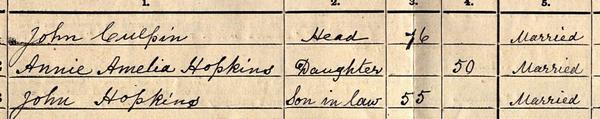 1. 2. 3. 4. 5.
John Culpin Head 76 Married
Annie Amelia Hopkins Daughter 50 Married
John Hopkins Son in law 55 Married